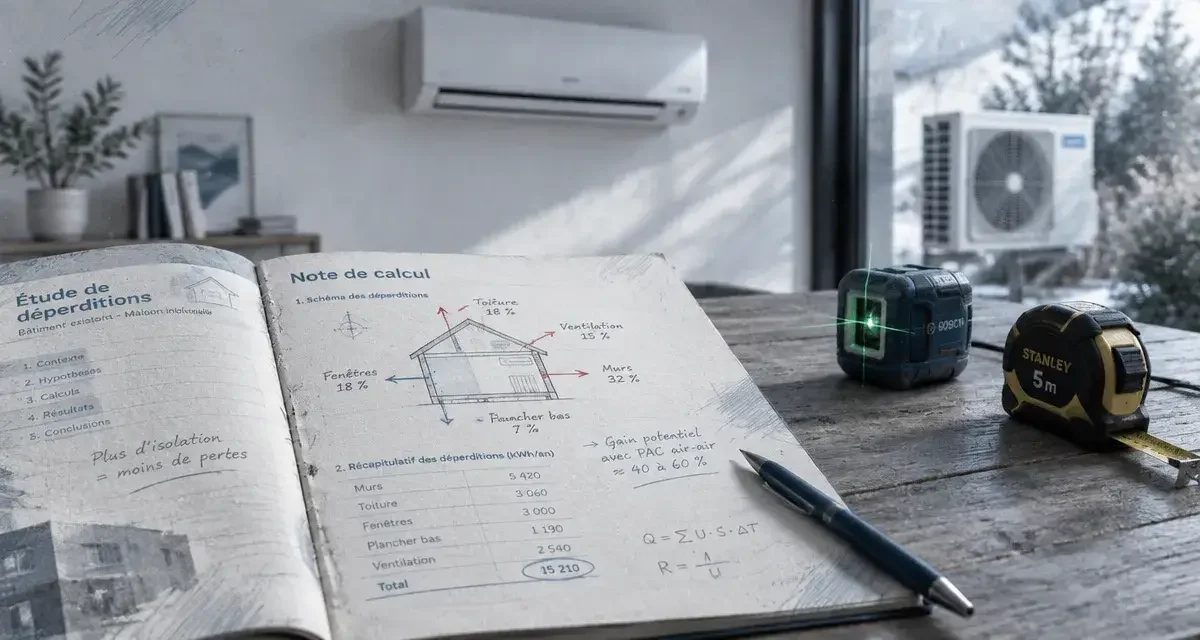 Étude de
déperditions
Bâtiment existant - Maison
1. Contexte
2. Hypothèses
3. Calculs
4. Résultats
5. Conclusions
Plus d'isolation
= moins de pertes
Note de calcul
1. Schéma des déperditions
Toiture
18 %
Ventilation
15 %
Fenêtres
18 %
Murs
32 %
Plancher bas
7 %
→ Gain potentiel
avec PAC air-air
≈ 40 à 60 %
2. Récapitulatif des déperditions (kWh/an)
Murs 5 420
Toiture 3 060
Fenêtres 3 000
Plancher bas 1 190
Ventilation 2 540
Total 15 210
Q = ∑ U · S · ΔT
R = 1/U
STANLEY
5m